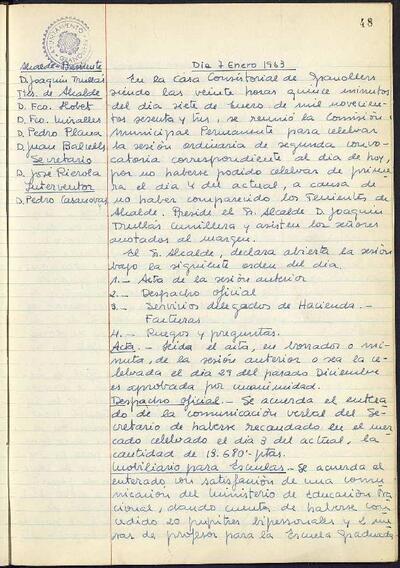 48
Día 7 Enero 1963
Alcalde-Presidente
D. Joaquín Trullás
Ttes. de Alcalde
D. Fco. Llobet
D. Fco. Miralles
D. Pedro Plana
D. Juan Balcells
Secretario
D. José Pierola
Interventor
D. Pedro Casanovas
En la Casa Consistorial de Granollers
siendo las veinte horas quince minutos
del día siete de Enero de mil novecien-
tos sesenta y tres, se reunió la Comisión
Municipal Permanente para celebrar
la sesión ordinaria de segunda convo-
catoria correspondiente al día de hoy,
por no haberse podido celebrar de prime-
ra el día 4 del actual, a causa de
no haber comparecido los Tenientes de
Alcalde. Preside el Sr. Alcalde D. Joaquín
Trullás y asisten los señores
anotados al margen.
El Sr. Alcalde, declara abierta la sesión
bajo la siguiente orden del día.
1.- Acta de la sesión anterior
2.- Despacho oficial
3.- Servicios delegados de Hacienda.-
Facturas
4.- Ruegos y preguntas.
Acta.- Leída el acta, en borrador o mi-
nuta, de la sesión anterior o sea la ce-
lebrada el día 29 del pasado Diciembre
es aprobada por unanimidad.
Despacho oficial.- Se acuerda el entera-
do de la comunicación verbal del Se-
cretario de haberse recaudado en el mer-
cado celebrado el día 3 del actual, la
cantidad de 13.680'- ptas.
Mobiliario para Escuelas.- Se acuerda el
enterado con satisfacción de una comu-
nicación del Ministerio de Educación Na-
cional, dando cuenta de haberse con-
cedido 20 pupitres bipersonales y 2 me-
sas de profesor para la Escuela Graduada